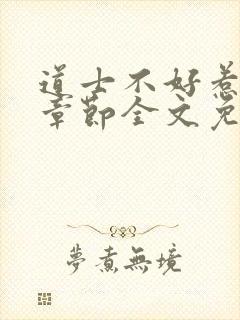 道士不好惹
章节全文免
夢煮無境